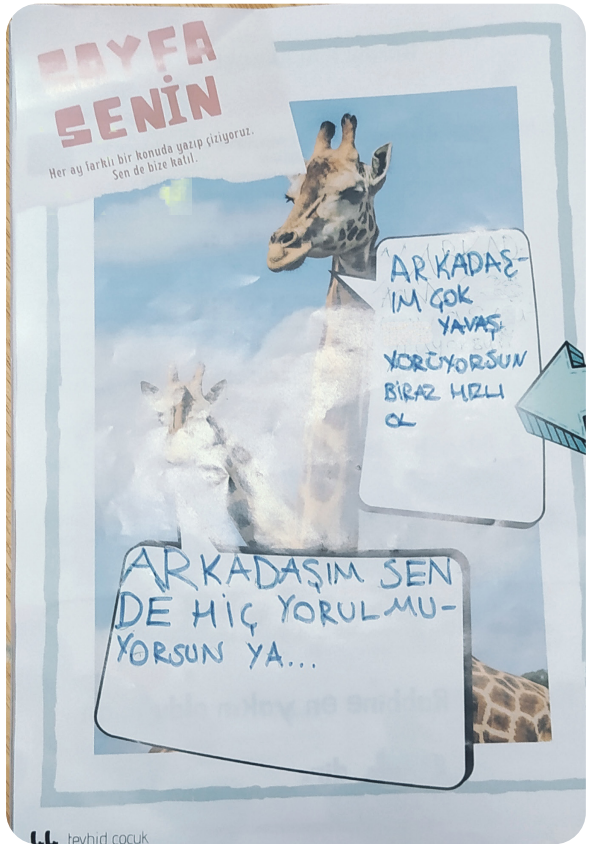 SAYFA
SENİN
Her ay farklı bir konuda yazıp çiziyoruz.
Sen de bize katıl.
ARKADAŞ-
IM ÇOK
YAVAŞ
YÖRÜYORSUN
BİRAZ HIZLI
OL
ARKADAŞIM SEN
DE HİÇ YORULMU-
YORSUN YA...
44 tevhid çocuk